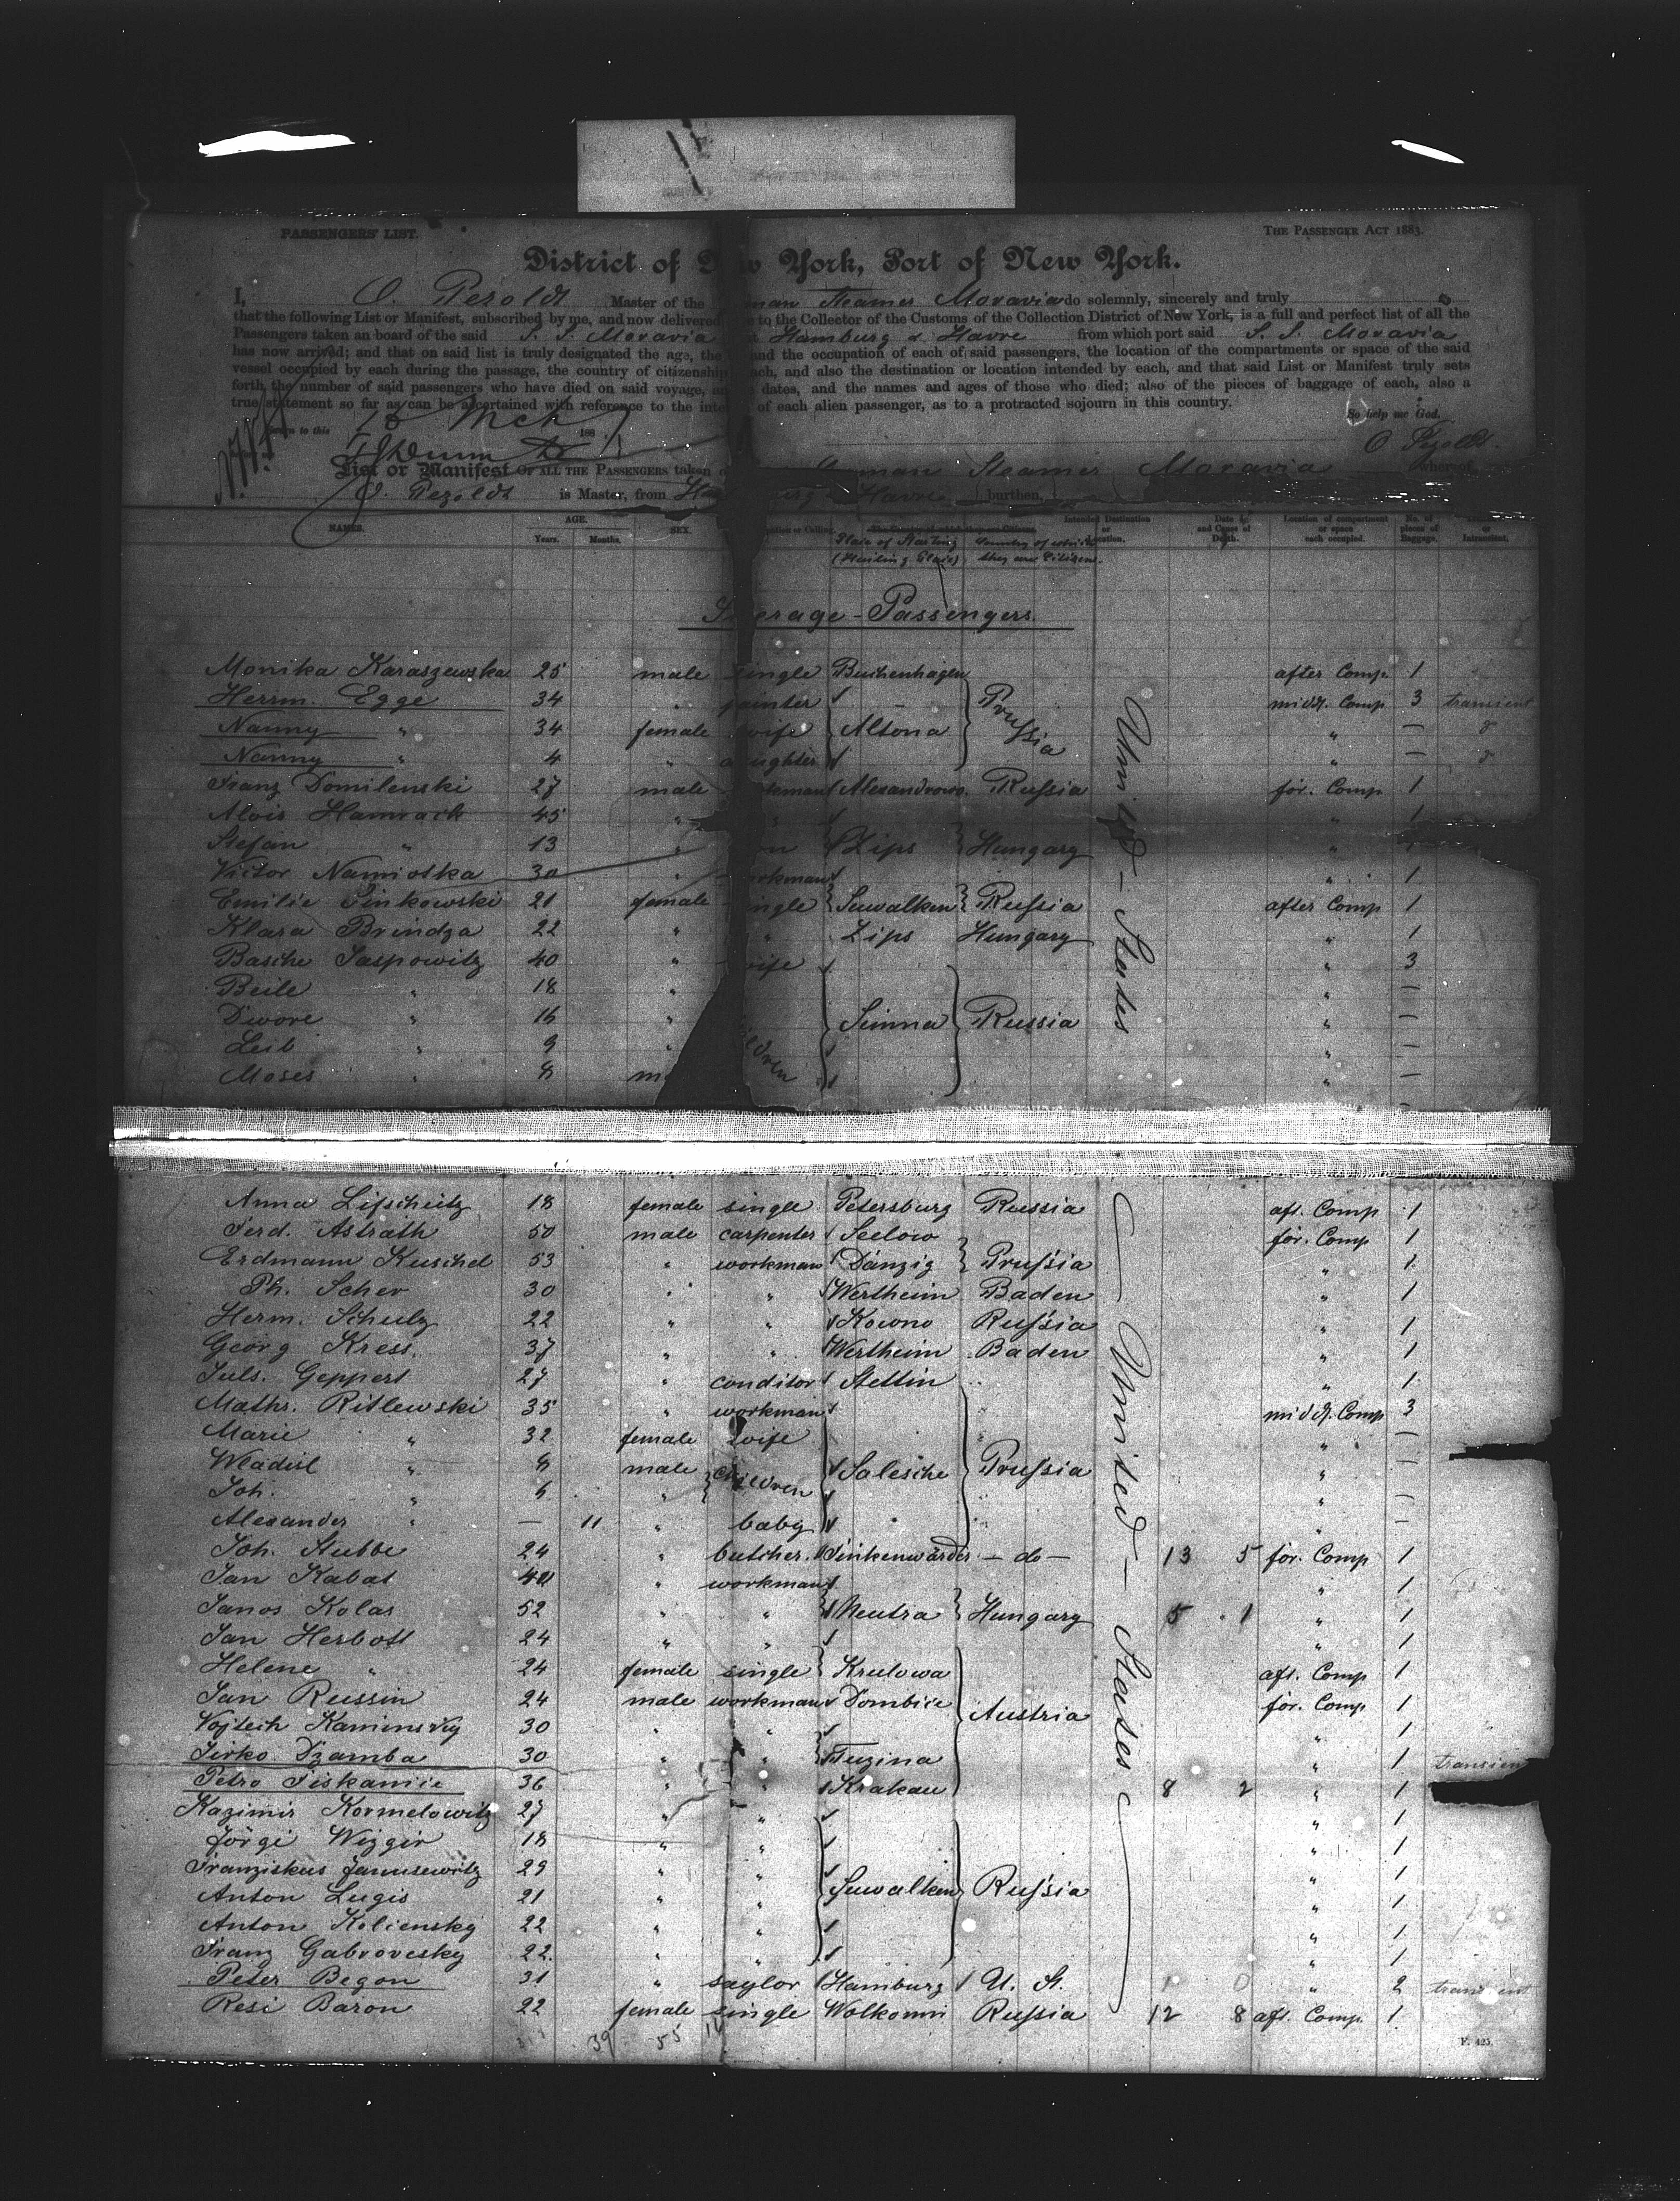 PASSENGERS' LIST. THE PASSENGER ACT 1883.
District of New York, Port of New York.
I, O. Pezoldt Master of the German Steamer Moravia do solemnly, sincerely and truly
that the following List or Manifest, subscribed by me, and now delivered to the Collector of the Customs of the Collection District of New York, is a full and perfect list of all the
Passengers taken on board of the said S. S. Moravia Hamburg & Havre from which port said S. S. Moravia
has now arrived; and that on said list is truly designated the age, the and the occupation of each of said passengers, the location of the compartments or space of the said
vessel occupied by each during the passage, the country of citizenship each, and also the destination or location intended by each, and that said List or Manifest truly sets
forth, the number of said passengers who have died on said voyage, dates, and the names and ages of those who died; also of the pieces of baggage of each, also a
true statement so far as can be ascertained with reference to the of each alien passenger, as to a protracted sojourn in this country.
So help me God.
to this Mch 188
O Pezoldt.
List or Manifest OF ALL THE PASSENGERS taken German Steamer Moravia whereof
O. Pezoldt is Master, from Havre burthen,
NAMES. AGE. Years. Months. SEX. Occupation or Calling. The Country of which they are Citizens. Intended Destination or Location. Date and Cause of Death. Location of compartment or space each occupied. No. of pieces of Baggage. or Intransient.
Place of Starting Country of which
they are Citizen.
Steerage-Passengers.
Monika Karaszewska 25 male single Buchenhagen after Comp. 1
Herrm. Egge 34 " painter midd. Comp 3 transient
Nanny " 34 female wife Altona Prussia " —
Nanny " 4 " daughter " —
Franz Domilenski 27 male workman Alexandrowo. Russia for. Comp 1
Alois Hamrack 45 " " " 1
Stefan " 13 " son Zips Hungary "
Victor Namiotka 30 " workman " 1
Emilie Sinkowski 21 female single Suwalken Russia after Comp 1
Klara Brindza 22 " " Zips Hungary " 1
Basche Saspowitz 40 " wife " 3
Beile " 18 " " —
Dwore " 16 " Simna Russia " —
Leib " 9 " children " —
Moses " 8 " —
United-States
Anna Lifscheitz 18 female single Petersburg Russia aft. Comp 1
Ferd. Astrath 50 male carpenter Seelow for. Comp 1
Erdmann Kuschel 53 " workman Danzig Prussia " 1
Ph. Scher 30 " " Wertheim Baden " 1
Herm. Schulz 22 " " Kowno Russia " 1
Georg Kress. 37 " " Wertheim Baden " 1
Juls. Geppert 27 " conditor Stettin " 1
Maths. Ritlewski 35 " workman midd. Comp 3
Marie " 32 female wife " —
Wladisl " 8 male children Salesche Prussia " —
Joh. " 6 " " —
Alexander " — 11 " baby " —
Joh. Stubbe 24 " butcher. Finkenwärder — do — 13 5 for. Comp 1
Jan Kabat 40 " workman " 1
Janos Kolas 52 " " Neutra Hungary 5 1 " 1
Jan Herbott 24 " " " 1
Helene " 24 female single Krulowa aft. Comp 1
Jan Russin 24 male workman Dombice Austria for. Comp 1
Vojtech Kaminsky 30 " " " 1
Jirko Dzamba 30 " " Tuzina " 1 transient
Petro Fiskamie 36 " " Krakau 8 2 " 1
Kazimir Kormelowitz 27 " " " 1
Jörgi Wizgir 18 " " " 1
Franziskus Janusewitz 29 " " " 1
Anton Lugis 21 " " Suwalken Russia " 1
Anton Koliensky 22 " " " 1
Franz Gabrovesky 22. " " " 1
Peter Begon 31 " saylor Hamburg U. St. 1 0 " 2 transient
Resi Baron 22 female single Wolkowni Russia 12 8 aft. Comp 1
United-States
39 55
F. 425.